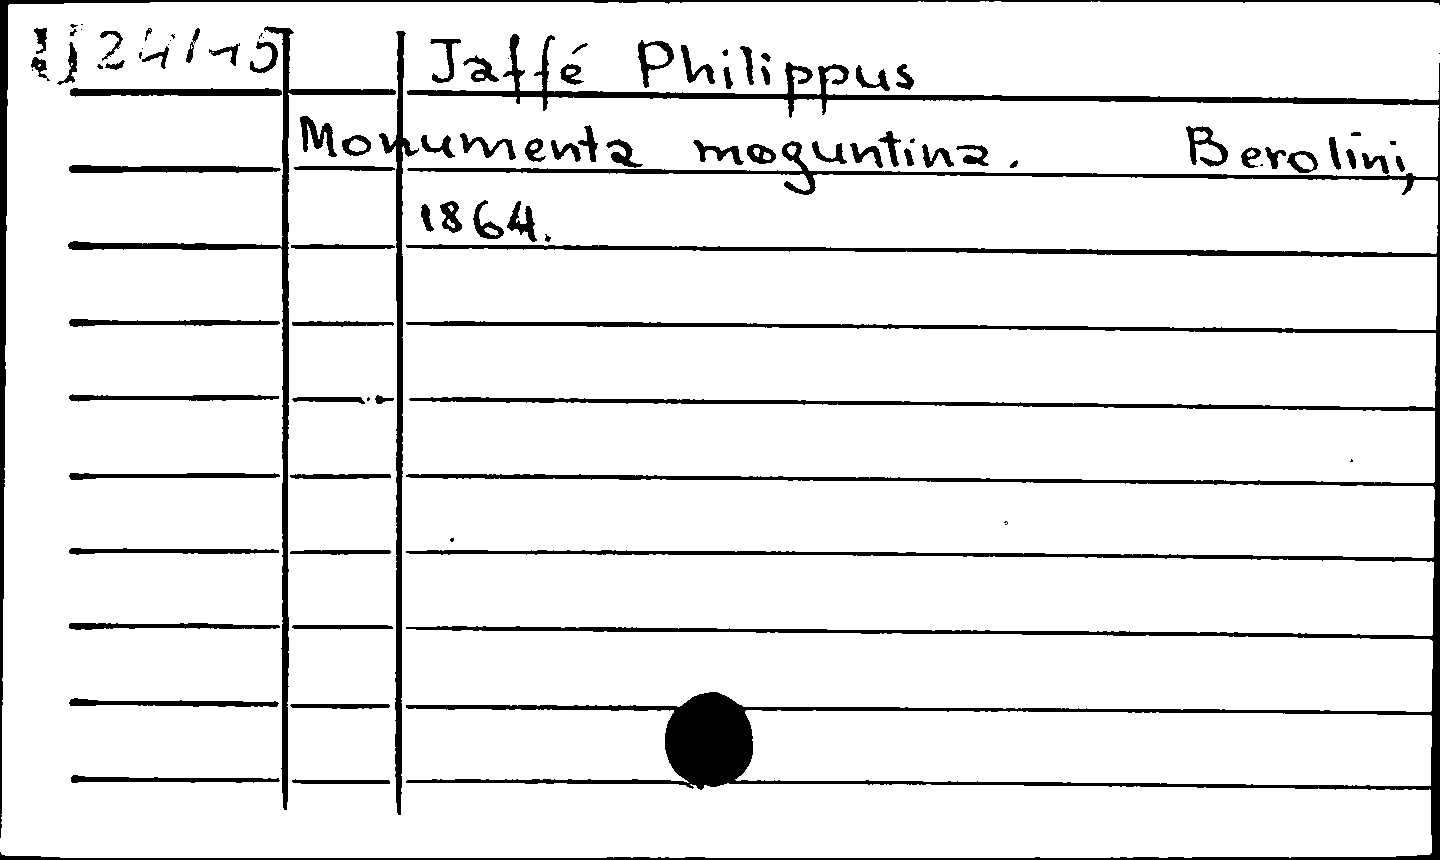 Jaffé Philippus
Monumenta moguntina. Berolini,
1864.